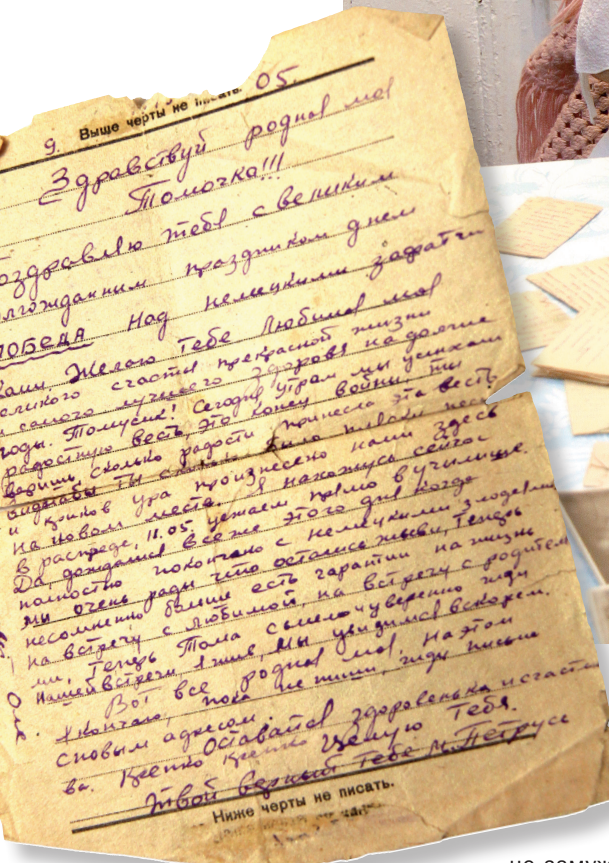 Выше черты не писать.
9. 05.
Здравствуй родная моя
Томочка!!!
оздравляю тебя с великим
лгожданним праздником днем
ПОБЕДА над немецкими захватчи
ками. Желаю тебе любимая моя
великого счастья прекрасной жизни
и самого лучшего здоровя на долгие
годы. Томусик! Сегодня утром мы услихали
радостную весть, это конец войни. ты
веришь, сколько радости принесла эта весть
видилабы ты сколько било
и криков ура произнесено нами здесь
на новом месте. Я нахожусь сейчас
в распреде, 11.05. уезжаем прямо в училище.
Да, дождались все же этого дня когда
полностю покончено с немецкими злодеями
мы очень рады что остались живы, теперь
несомненно больше есть гарантии на жизнь
на встречу с любимой, на встречу с родителя
ми, Теперь Тома смело и уверенно жди
нашей встречи, я жив, мы увидимся вскорем.
Вот все родная моя. На этом
я кончаю, пока не пиши, жди письма
с новым адресом.
Оставайся здоровенька и счастли
ва. Крепко крепко Целую Тебя.
Твой верный Тебе м. Петрусь
Ниже черты не писать.